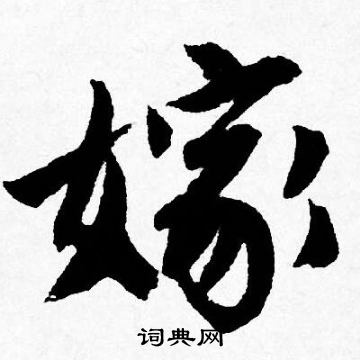 嫁
词典网